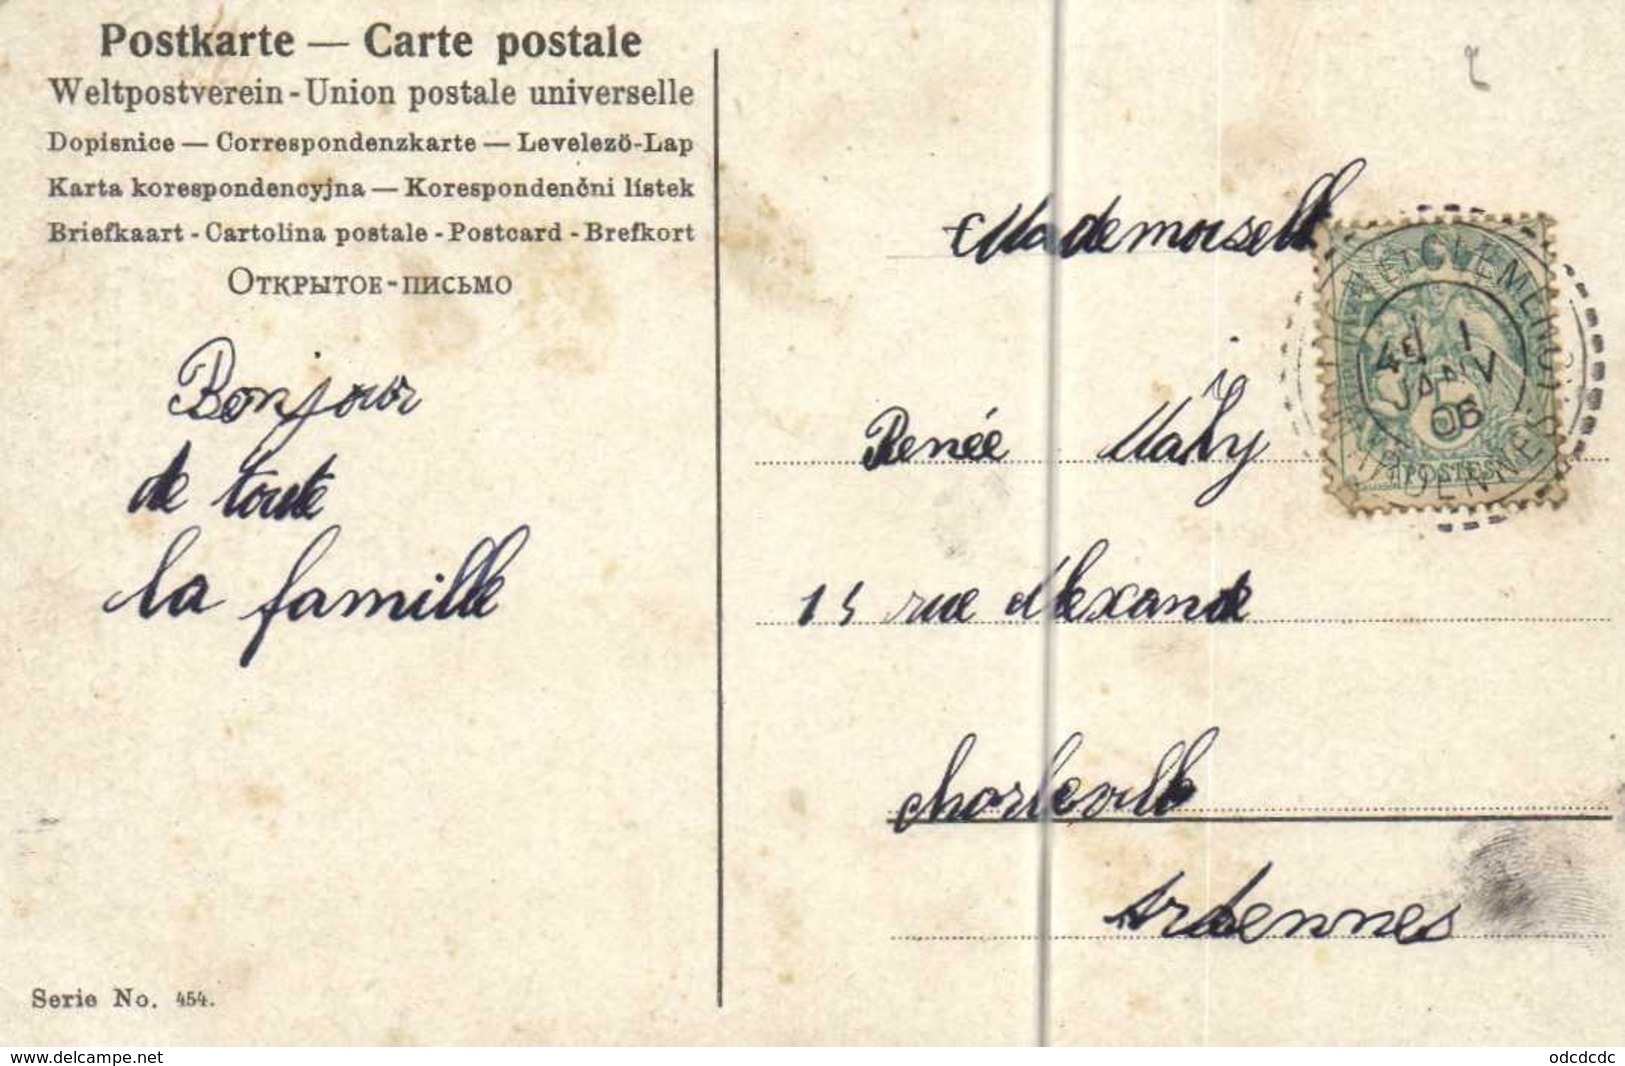 Postkarte — Carte postale
Weltpostverein - Union postale universelle
Dopisnice — Correspondenzkarte — Levelező-Lap
Karta korespondencyjna — Korespondenčni lístek
Briefkaart - Cartolina postale - Postcard - Brefkort
Открытое-письмо
Bonjour
de toute
la famille
Serie No. 454.
Mademoiselle
Renée
rue Alexandre
Charleville
Ardennes
1
JANV
06
5
POSTES
ARDENNES
www.delcampe.net
odcdcdc